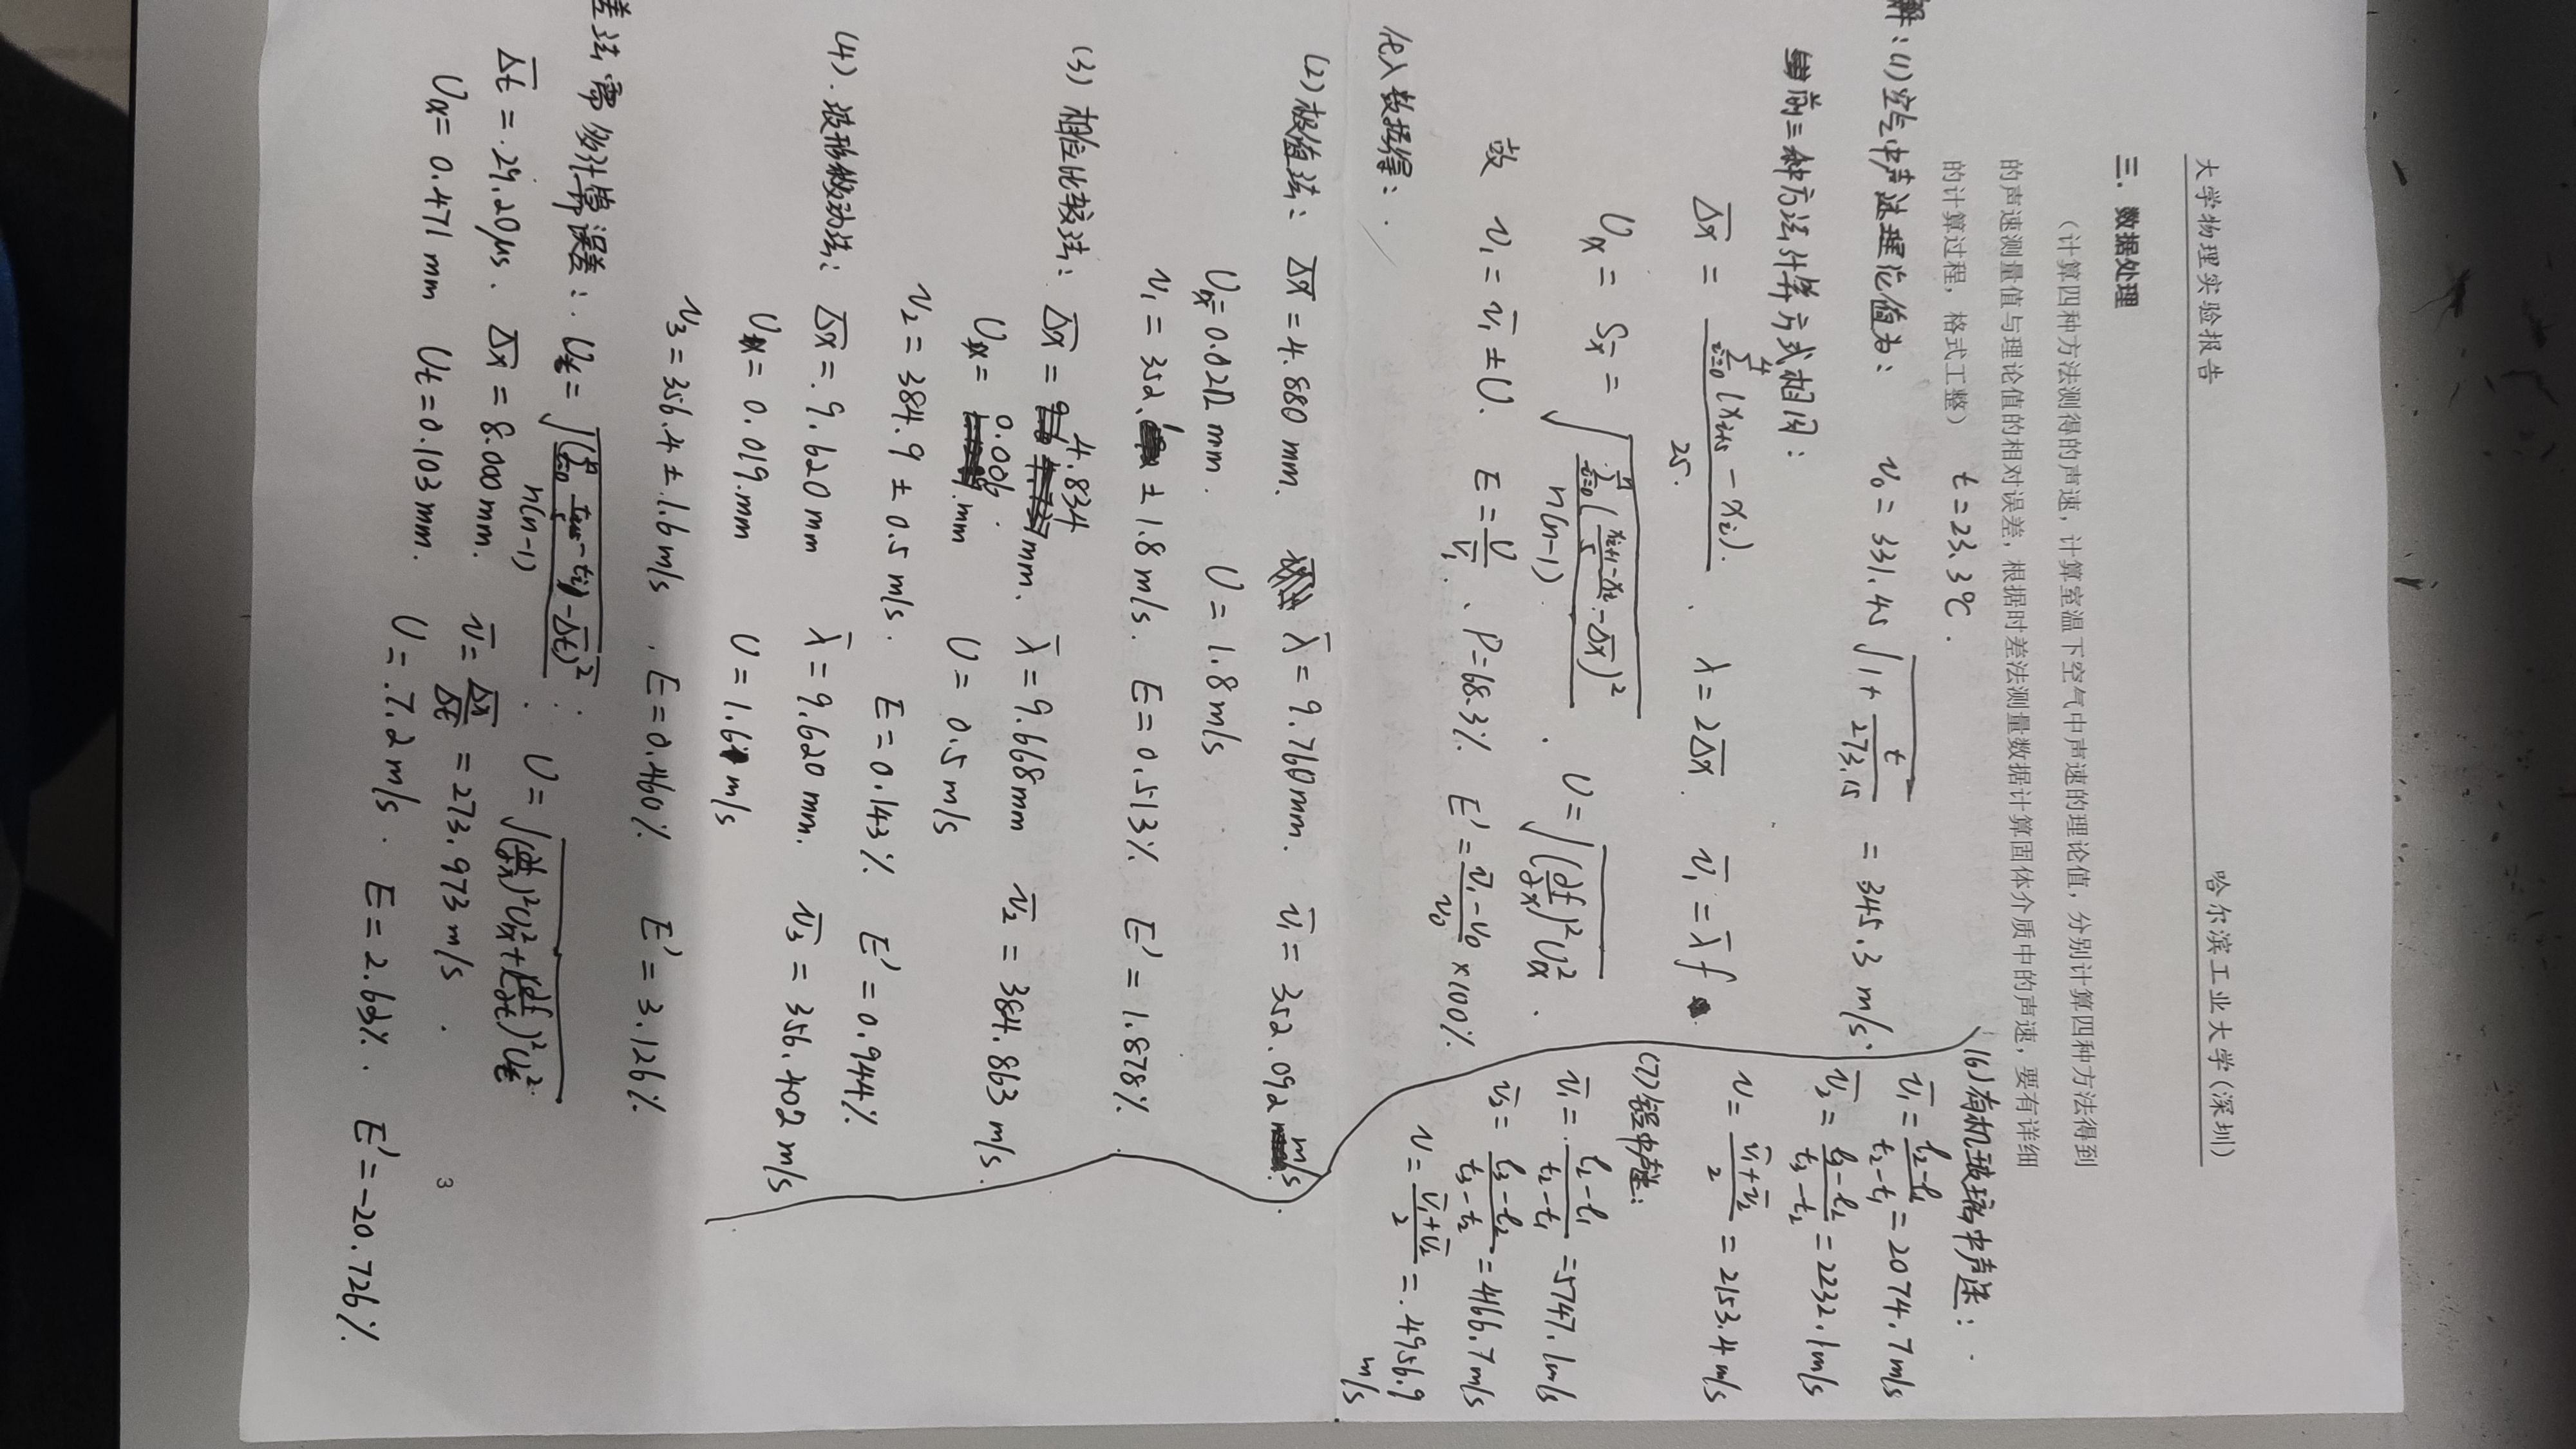 大学物理实验报告 哈尔滨工业大学(深圳)
三. 数据处理
(计算四种方法测得的声速, 计算室温下空气中声速的理论值, 分别计算四种方法得到
的声速测量值与理论值的相对误差, 根据时差法测量数据计算固体介质中的声速, 要有详细
的计算过程, 格式工整) t=23.3℃.
解:(1)空气中声速理论值为: v₀=331.45√(1+t/273.15) = 345.3 m/s.
前三种方法计算方式相同:
Δx̄ = Σ(i=0→4)(x_{i+5} - x_i)/25. λ=2Δx̄. v̄₁=λ̄f
Uₓ = Sₓ = √(Σ(i=0→n)((x_{i+1}-x_i)/5-Δx̄)²/n(n-1)). U=√((∂f/∂x)²Uₓ²).
故 v₁=v̄₁±U. E=U/v̄₁. P=68.3% E'=(v̄₁-v₀)/v₀×100%
代入数据得:
(2)极值法: Δx̄=4.880mm. λ̄=9.760mm. v̄₁=352.092 m/s
Uₓ=0.02 mm. U=1.8m/s
v₁=352.1±1.8m/s. E=0.513% E'=1.878%
(3)相位比较法: Δx̄=4.834 mm. λ̄=9.668mm v̄₂=384.863 m/s.
Uₓ=0.006 mm U=0.5m/s
v₂=384.9±0.5m/s. E=0.143% E'=0.944%
(4).波形移动法: Δx̄=9.620mm λ̄=9.620mm. v̄₃=356.402m/s
Uₓ=0.019.mm U=1.6 m/s
v₃=356.4±1.6m/s. E=0.460% E'=3.126%
差法需多计算误差: U_t=√(Σ(i=0→n)((t_{i+5}-t_i)/5-Δt̄)²/n(n-1)). U=√((∂f/∂x)²Uₓ²+(∂f/∂t)²U_t²)
Δt̄=29.20μs. Δx̄=8.000mm. v̄=Δx̄/Δt̄=273.973m/s.
Uₓ=0.471mm U_t=0.103mm. U=7.2m/s. E=2.63%. E'=-20.726%.
(6)有机玻璃中声速:
v̄₁=(l₂-l₁)/(t₂-t₁)=2074.7m/s
v̄₂=(l₃-l₂)/(t₃-t₂)=2232.1m/s
v=(v̄₁+v̄₂)/2=2153.4m/s
(7)铝中声速:
v̄₁=(l₂-l₁)/(t₂-t₁)=5747.1m/s
v̄₂=(l₃-l₂)/(t₃-t₂)=4166.7m/s
v=(v̄₁+v̄₂)/2=4956.9 m/s
3